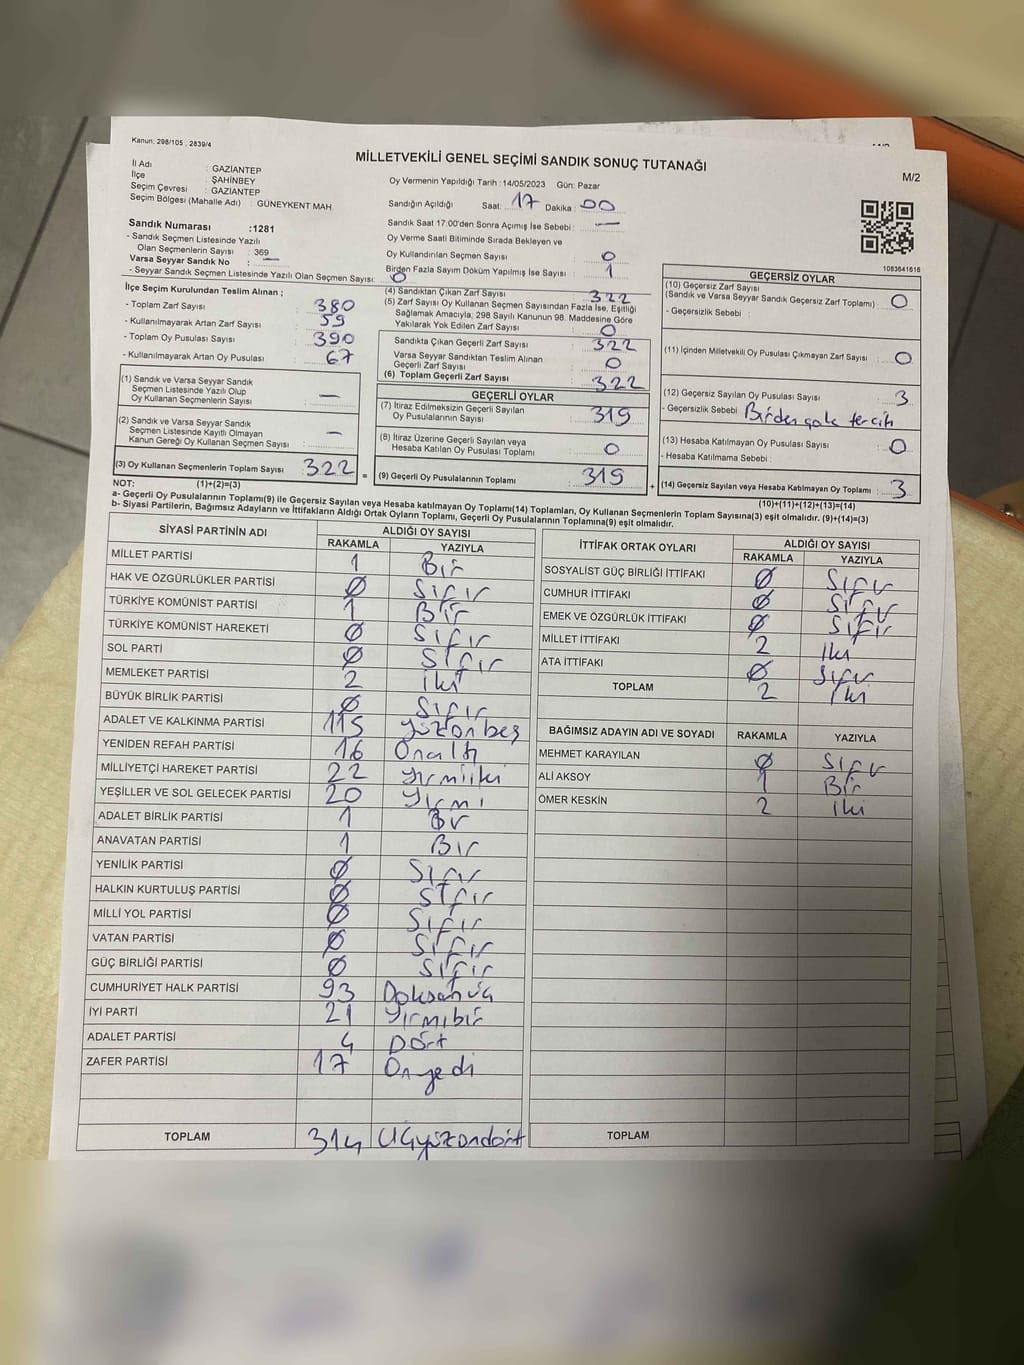 Kanun: 298/105 , 2839/4
MİLLETVEKİLİ GENEL SEÇİMİ SANDIK SONUÇ TUTANAĞI
M/2
İl Adı : GAZİANTEP
İlçe : ŞAHİNBEY
Seçim Çevresi : GAZİANTEP
Seçim Bölgesi (Mahalle Adı) : GÜNEYKENT MAH.
Oy Vermenin Yapıldığı Tarih : 14/05/2023 Gün: Pazar
Sandığın Açıldığı Saat: 17 Dakika : 00
Sandık Saat 17:00'den Sonra Açımış İse Sebebi : —
Oy Verme Saati Bitiminde Sırada Bekleyen ve
Oy Kullandırılan Seçmen Sayısı : 0
Birden Fazla Sayım Döküm Yapılmış İse Sayısı : 1
Sandık Numarası :1281
- Sandık Seçmen Listesinde Yazılı
Olan Seçmenlerin Sayısı : 369
Varsa Seyyar Sandık No : —
- Seyyar Sandık Seçmen Listesinde Yazılı Olan Seçmen Sayısı: 0
1083641616
İlçe Seçim Kurulundan Teslim Alınan ;
- Toplam Zarf Sayısı : 380
- Kullanılmayarak Artan Zarf Sayısı : 59
- Toplam Oy Pusulası Sayısı : 390
- Kullanılmayarak Artan Oy Pusulası : 67
(1) Sandık ve Varsa Seyyar Sandık
Seçmen Listesinde Yazılı Olup
Oy Kullanan Seçmenlerin Sayısı : —
(2) Sandık ve Varsa Seyyar Sandık
Seçmen Listesinde Kayıtlı Olmayan
Kanun Gereği Oy Kullanan Seçmen Sayısı : —
(3) Oy Kullanan Seçmenlerin Toplam Sayısı : 322 =
(4) Sandıktan Çıkan Zarf Sayısı : 322
(5) Zarf Sayısı Oy Kullanan Seçmen Sayısından Fazla İse, Eşitliği
Sağlamak Amacıyla; 298 Sayılı Kanunun 98. Maddesine Göre
Yakılarak Yok Edilen Zarf Sayısı : 0
Sandıkta Çıkan Geçerli Zarf Sayısı : 322
Varsa Seyyar Sandıktan Teslim Alınan
Geçerli Zarf Sayısı : 0
(6) Toplam Geçerli Zarf Sayısı : 322
GEÇERLİ OYLAR
(7) İtiraz Edilmeksizin Geçerli Sayılan
Oy Pusulalarının Sayısı : 319
(8) İtiraz Üzerine Geçerli Sayılan veya
Hesaba Katılan Oy Pusulası Toplamı : 0
(9) Geçerli Oy Pusulalarının Toplamı : 319 +
GEÇERSİZ OYLAR
(10) Geçersiz Zarf Sayısı
(Sandık ve Varsa Seyyar Sandık Geçersiz Zarf Toplamı) : 0
- Geçersizlik Sebebi :
(11) İçinden Milletvekili Oy Pusulası Çıkmayan Zarf Sayısı : 0
(12) Geçersiz Sayılan Oy Pusulası Sayısı : 3
- Geçersizlik Sebebi : Birden çok tercih
(13) Hesaba Katılmayan Oy Pusulası Sayısı : 0
- Hesaba Katılmama Sebebi :
(14) Geçersiz Sayılan veya Hesaba Katılmayan Oy Toplamı : 3
NOT: (1)+(2)=(3)
(10)+(11)+(12)+(13)=(14)
a- Geçerli Oy Pusulalarının Toplamı(9) ile Geçersiz Sayılan veya Hesaba katılmayan Oy Toplamı(14) Toplamları, Oy Kullanan Seçmenlerin Toplam Sayısına(3) eşit olmalıdır. (9)+(14)=(3)
b- Siyasi Partilerin, Bağımsız Adayların ve İttifakların Aldığı Ortak Oyların Toplamı, Geçerli Oy Pusulalarının Toplamına(9) eşit olmalıdır.
SİYASİ PARTİNİN ADI ALDIĞI OY SAYISI
RAKAMLA YAZIYLA
MİLLET PARTİSİ 1 Bir
HAK VE ÖZGÜRLÜKLER PARTİSİ 0 Sıfır
TÜRKİYE KOMÜNİST PARTİSİ 1 Bir
TÜRKİYE KOMÜNİST HAREKETİ 0 Sıfır
SOL PARTİ 0 Sıfır
MEMLEKET PARTİSİ 2 iki
BÜYÜK BİRLİK PARTİSİ 0 Sıfır
ADALET VE KALKINMA PARTİSİ 115 yüzonbeş
YENİDEN REFAH PARTİSİ 16 Onaltı
MİLLİYETÇİ HAREKET PARTİSİ 22 yirmiiki
YEŞİLLER VE SOL GELECEK PARTİSİ 20 Yirmi
ADALET BİRLİK PARTİSİ 1 Bir
ANAVATAN PARTİSİ 1 Bir
YENİLİK PARTİSİ 0 Sıfır
HALKIN KURTULUŞ PARTİSİ 0 Sıfır
MİLLİ YOL PARTİSİ 0 Sıfır
VATAN PARTİSİ 0 Sıfır
GÜÇ BİRLİĞİ PARTİSİ 0 Sıfır
CUMHURİYET HALK PARTİSİ 93 Doksanüç
İYİ PARTİ 21 Yirmibir
ADALET PARTİSİ 4 Dört
ZAFER PARTİSİ 17 Onyedi
TOPLAM 314 Üçyüzondört
İTTİFAK ORTAK OYLARI ALDIĞI OY SAYISI
RAKAMLA YAZIYLA
SOSYALİST GÜÇ BİRLİĞİ İTTİFAKI 0 Sıfır
CUMHUR İTTİFAKI 0 Sıfır
EMEK VE ÖZGÜRLÜK İTTİFAKI 0 Sıfır
MİLLET İTTİFAKI 2 İki
ATA İTTİFAKI 0 Sıfır
TOPLAM 2 İki
BAĞIMSIZ ADAYIN ADI VE SOYADI RAKAMLA YAZIYLA
MEHMET KARAYILAN 0 Sıfır
ALİ AKSOY 1 Bir
ÖMER KESKİN 2 iki
TOPLAM